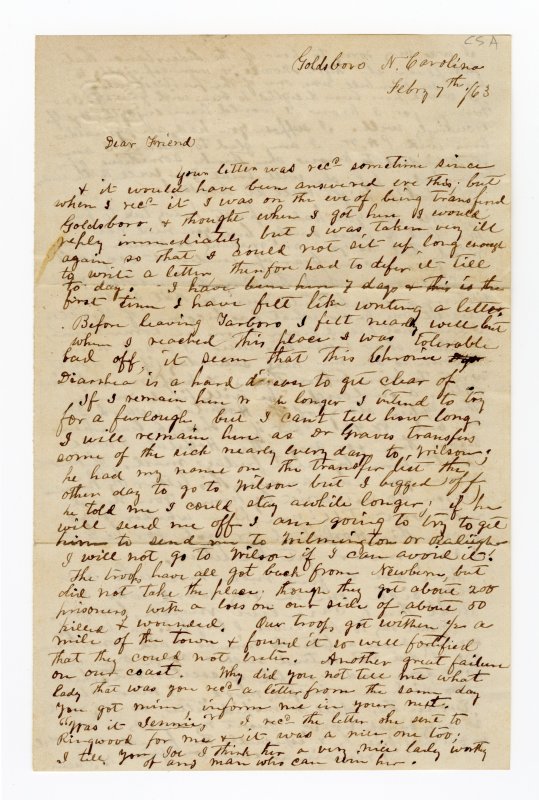 CSA
Goldsboro N. Carolina
Febry 7th /63
Dear Friend
your letter was recd sometime since
& it would have been answered ere this; but
when I recd it I was on the eve of being transferd
Goldsboro, & thought when I got here I would
reply immediately but I was taken very ill
again so that I could not sit up long enough
to write a letter, therefore had to defer it till
to day. I have been here 7 days & this is the
first time I have felt like writing a letter
Before leaving Tarboro I felt nearly well but
when I reached this place I was tolerable
bad off it seems that this Chronic
Diarrhea is a hard to get clear of
If I remain here longer I intend to try
for a furlough but I can't tell how long
I will remain here as Dr Graves transfers
some of the sick nearly every day to Wilson;
he had my name on the transfer list the
other day to go to Wilson but I begged off
he told me I could stay awhile longer; if he
will send me off I am going to try to get
him to send me to Wilmington or Raleigh
I will not go to Wilson if I can avoid it!
The troops have all got back from Newbern, but
did not take the place; though they got about 200
prisoners with a loss on our side of about 50
killed & wounded. Our troops got within 1/2 a
mile of the town & found it so well fortified
that they could not enter. Another great failure
on our coast. Why did you not tell me what
lady that was you recd a letter from the same day
you got mine inform me in your next.
"Was it Jennie," I recd the letter she sent to
Ringwood for me & it was a nice one too;
I tell you Joe I think her a very nice lady worthy
of any man who can win her.